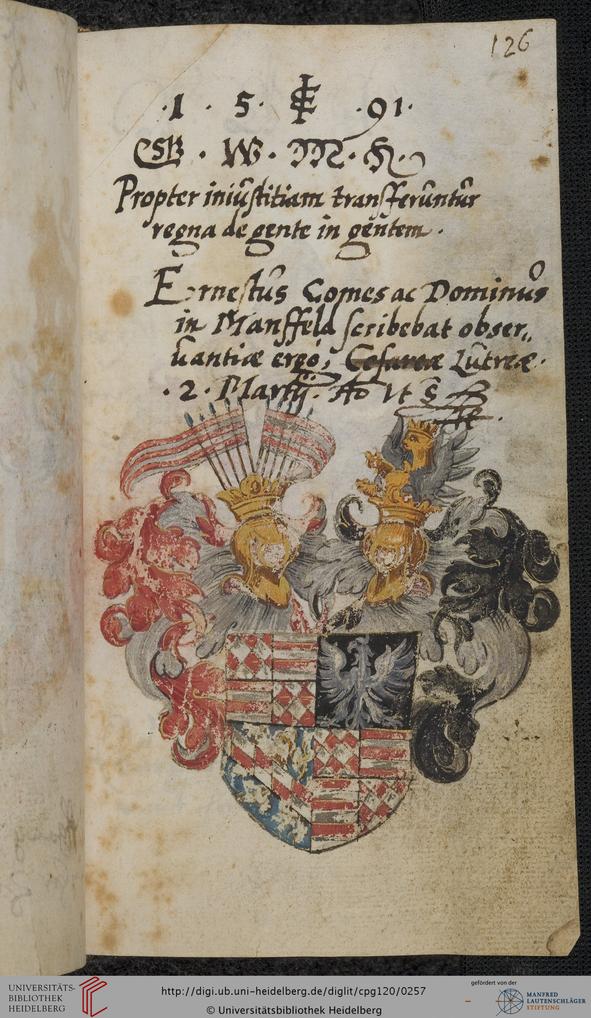 126
· 1 · 5 · · 91 ·
· W · M · H ·
Propter iniustitiam transferuntur
regna de gente in gentem ·
Ernestus Comes ac Dominus
in Mansfeld scribebat obser„
uantiæ ergo, Cesareæ Lutreæ ·
· 2 · Martij · Ao
UNIVERSITÄTS-
BIBLIOTHEK
HEIDELBERG
http://digi.ub.uni-heidelberg.de/diglit/cpg120/0257
© Universitätsbibliothek Heidelberg
gefördert von der
MANFRED
LAUTENSCHLÄGER
STIFTUNG